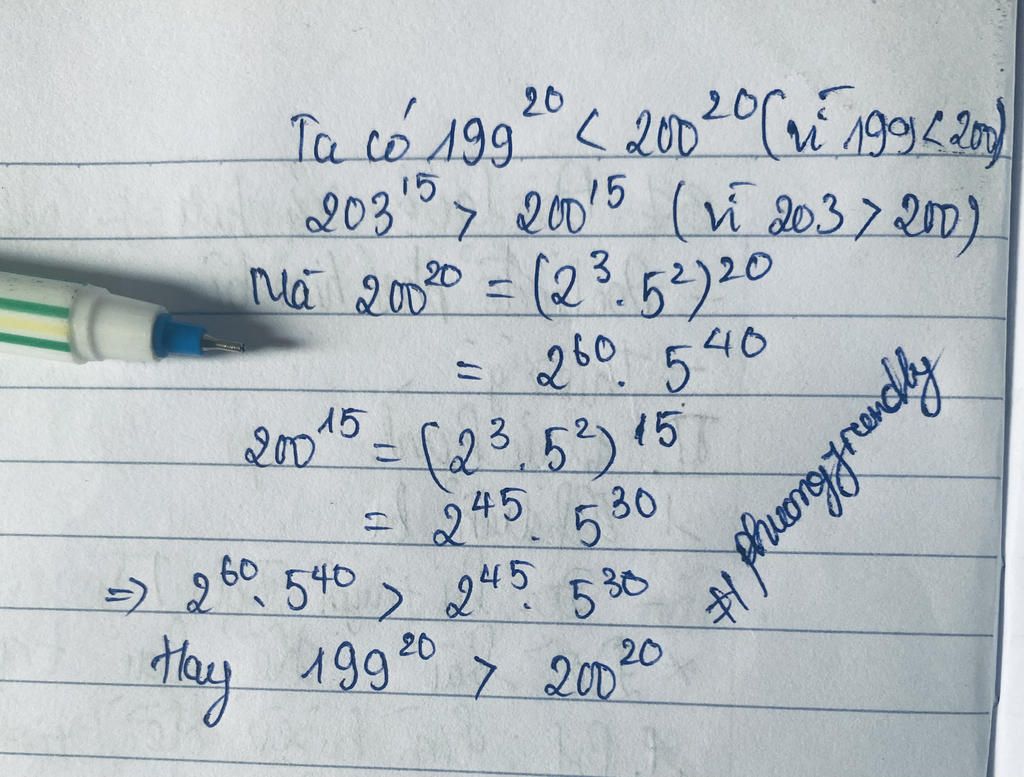 Ta có 199^20 < 200^20 (vì 199 < 200)
203^15 > 200^15 (vì 203 > 200)
Mà 200^20 = (2^3 . 5^2)^20
= 2^60 . 5^40
200^15 = (2^3 . 5^2)^15
= 2^45 . 5^30
=> 2^60 . 5^40 > 2^45 . 5^30
Hay 199^20 > 200^20